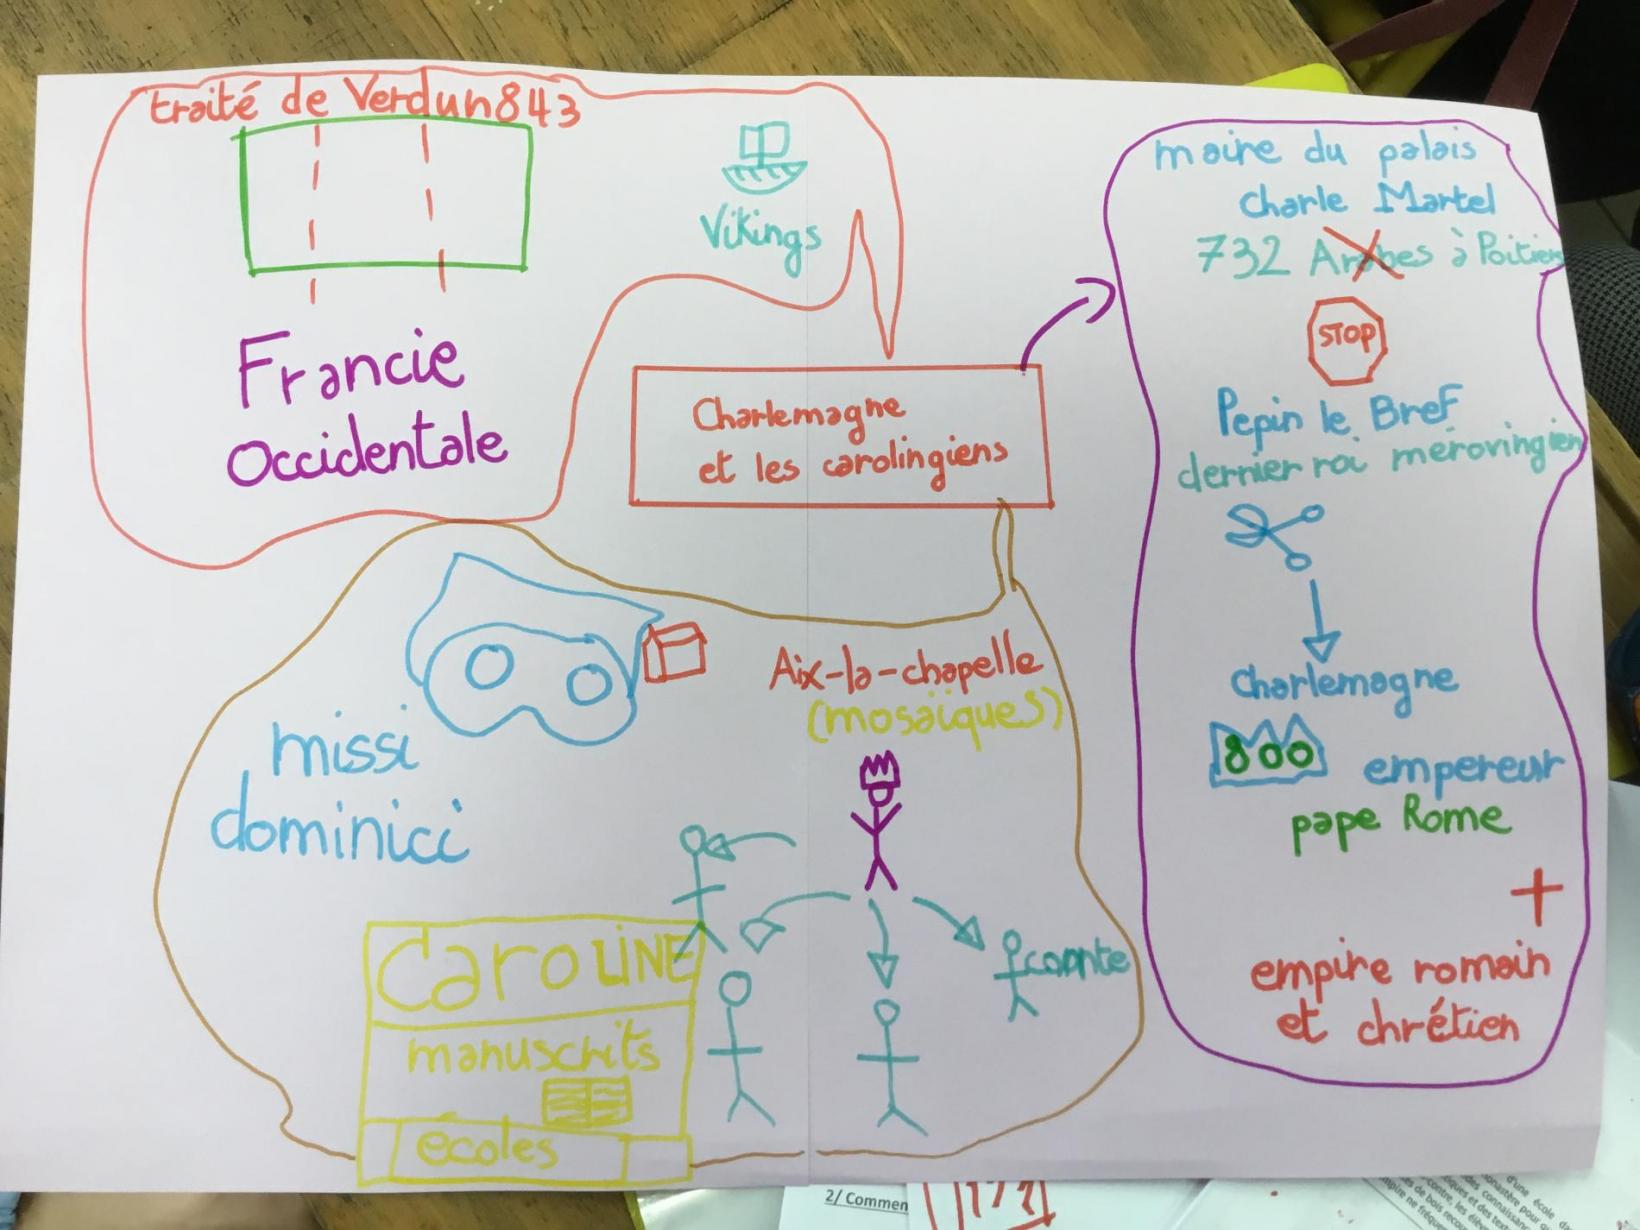 traité de Verdun 843
Vikings
Francie
Occidentale
Charlemagne
et les carolingiens
maire du palais
Charle Martel
732 Arabes à Poitiers
STOP
Pepin le Bref
dernier roi mérovingien
Charlemagne
800 empereur
pape Rome
+
empire romain
et chrétien
Aix-la-chapelle
(mosaïques)
missi
dominici
comte
CaroLINE
manuscrits
écoles
2/ Commen